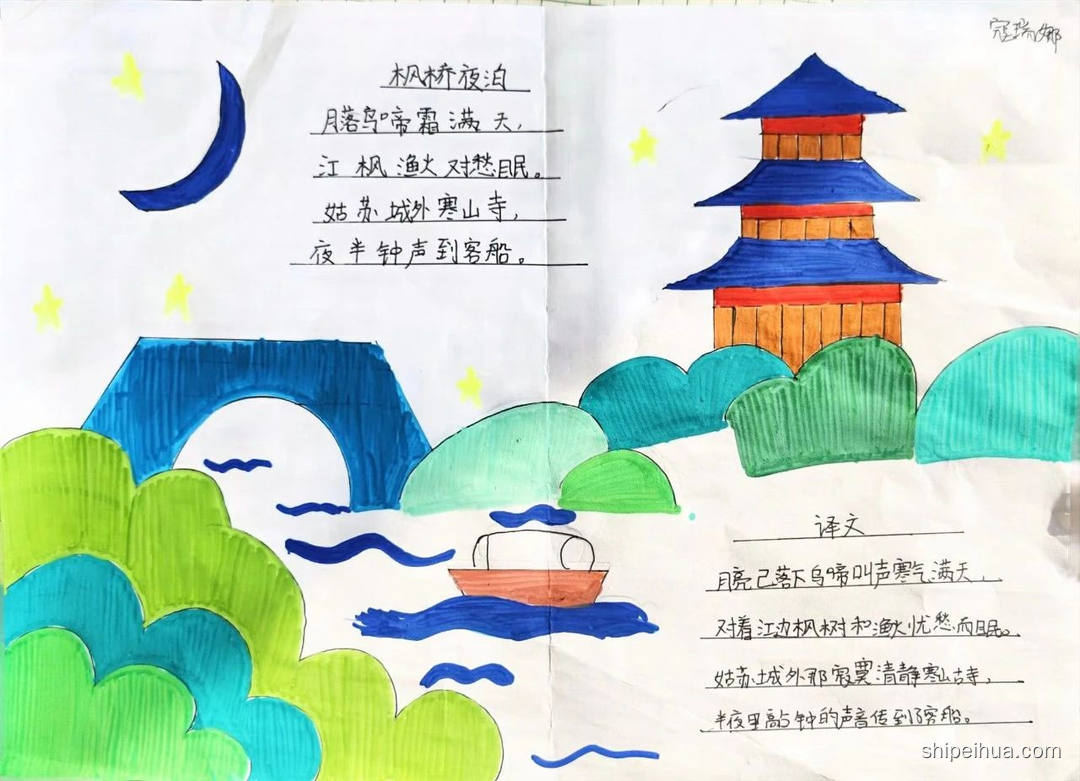 寇瑞娜
枫桥夜泊
月落乌啼霜满天，
江枫渔火对愁眠。
姑苏城外寒山寺，
夜半钟声到客船。
译文
月亮已落下乌啼叫声寒气满天，
对着江边枫树和渔火忧愁而眠。
姑苏城外那寂寞清静寒山古寺，
半夜里敲钟的声音传到客船。
shipeihua.com